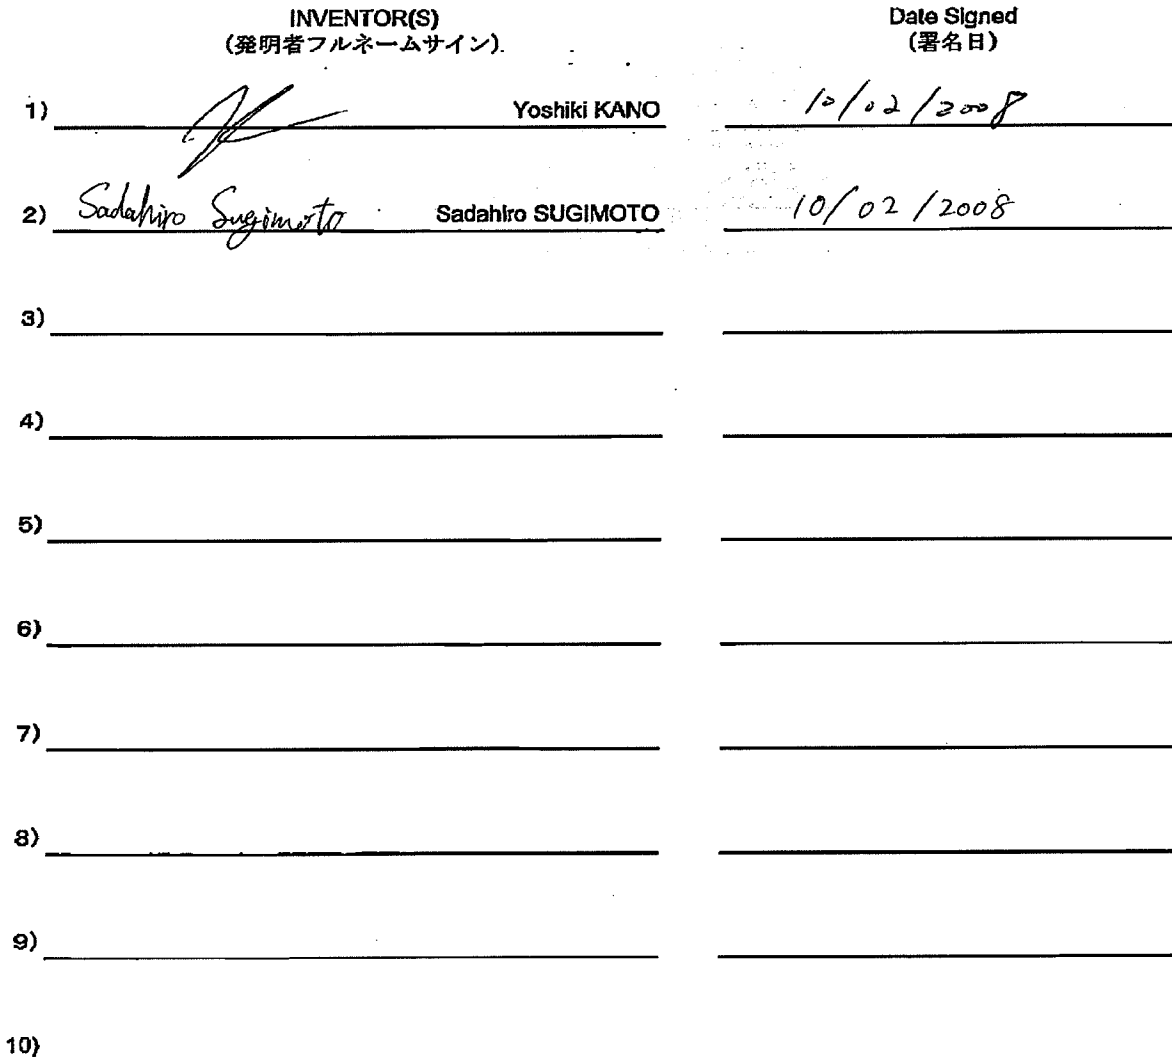 INVENTOR(S) Date Signed
(発明者フルネームサイン) (署名日)
1) Yoshiki KANO 10/02/2008
2) Sadahiro Sugimoto Sadahiro SUGIMOTO 10/02/2008
3)
4)
5)
6)
7)
8)
9)
10)